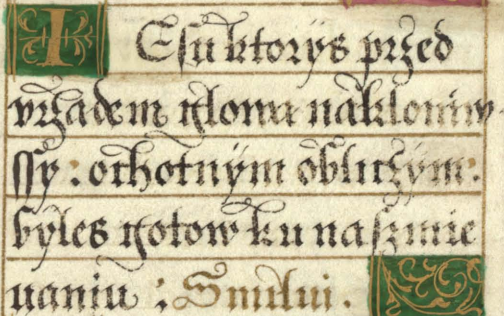 IEsu ktorijs przed
vrzadem glowa nakloniw-
ssy : ochotnijm obliczijm:
byles gotow ku naszmie
uaniu : Smilui.